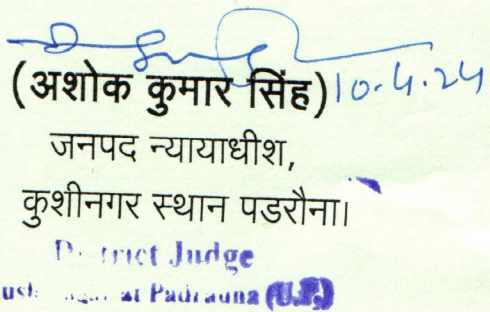 (अशोक कुमार सिंह) 10.4.24
जनपद न्यायाधीश,
कुशीनगर स्थान पडरौना।
District Judge
at Padrauna (U.P.)